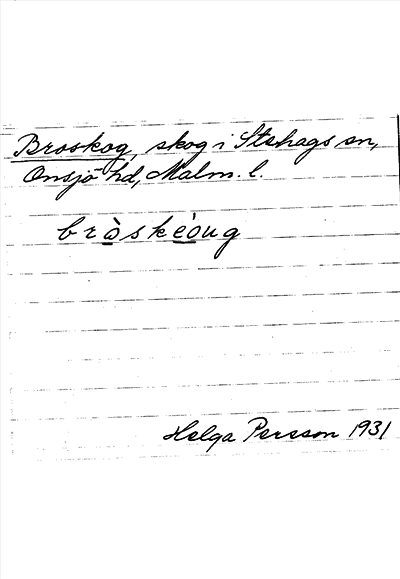 Broskog, skog i Stehags sn,
Onsjö hd, Malm. l.
bròskéòug
Helga Persson 1931